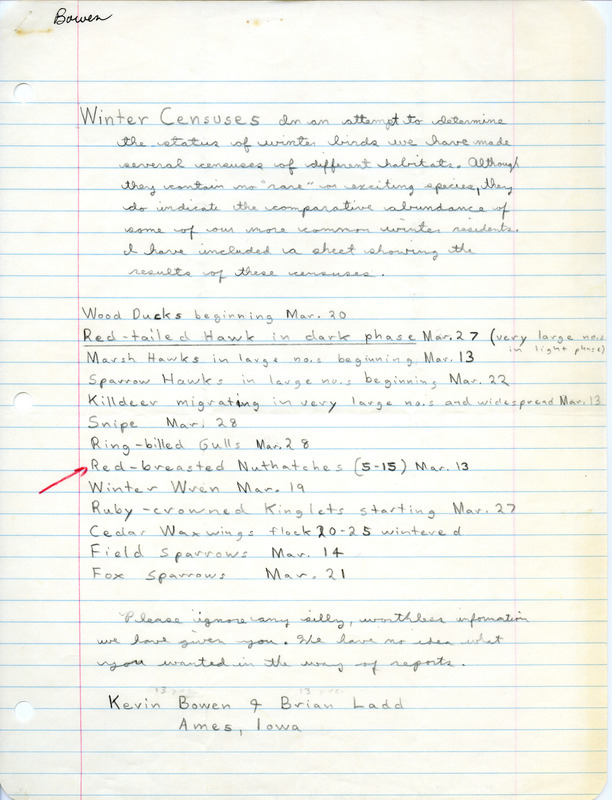 Bowen
Winter Censuses In an attempt to determine
the status of winter birds we have made
several censuses of different habitats. Although
they contain no "rare" or exciting species, they
do indicate the comparative abundance of
some of our more common winter residents.
I have included a sheet showing the
results of these censuses.
Wood Ducks beginning Mar. 20
Red-tailed Hawk in dark phase Mar. 27 (very large no.s
in light phase)
Marsh Hawks in large no.s beginning Mar. 13
Sparrow Hawks in large no.s beginning Mar. 22
Killdeer migrating in very large no.s and widespread Mar. 13
Snipe Mar. 28
Ring-billed Gulls Mar. 28
Red-breasted Nuthatches (5-15) Mar. 13
Winter Wren Mar. 19
Ruby-crowned Kinglets starting Mar. 27
Cedar Waxwings flock 20-25 wintered
Field Sparrows Mar. 14
Fox Sparrows Mar. 21
Please ignore any silly, worthless infomation
we have given you. We have no idea what
you wanted in the way of reports.
Kevin Bowen & Brian Ladd
Ames, Iowa